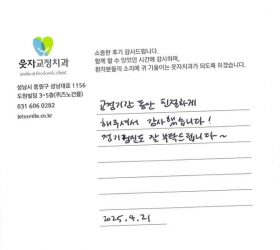 웃자교정치과
성남시 중원구 성남대로 1156
도원빌딩 3-5층(위즈노건물)
031 606 0282
letssmile.co.kr
소중한 후기 감사드립니다.
함께 할 수 있었던 시간에 감사하며,
환자분들의 소리에 귀 기울이는 웃자치과가 되도록 하겠습니다.
교정기간 동안 친절하게
해주셔서 감사했습니다!
정기검진도 잘 부탁드립니다~
2025.4.21